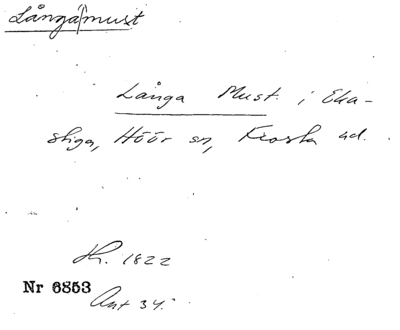 Långa|must
Långa Must. i Eka-
stiga, Höör sn, Frosta hd.
Hr. 1822
Nr 6853
Ant 34.